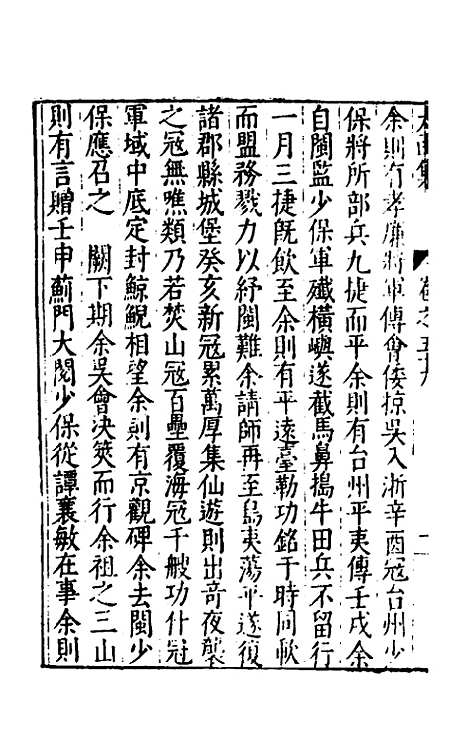 太函集 卷之五十九
余則有孝廉將軍傳會倭掠吳入浙辛酉冦台州少
保將所部兵九捷而平余則有台州平夷傳壬戌余
自閩監少保軍殲橫嶼遂截馬鼻搗牛田兵不留行
一月三捷旣飲至余則有平遠臺勒功銘于時同歃
而盟務戮力以紓閩難余請師再至島夷蕩平遂復
諸郡縣城堡癸亥新冦累萬厚集仙遊則出奇夜襲
之冦無噍類乃若焚山冦百壘覆海冦千艘功什冠
軍域中底定封鯨鯢相望余則有京觀碑余去閩少
保應召之 闕下期余吳會決筴而行余祖之三山
則有言贈壬申薊門大閱少保從譚襄敏在事余則